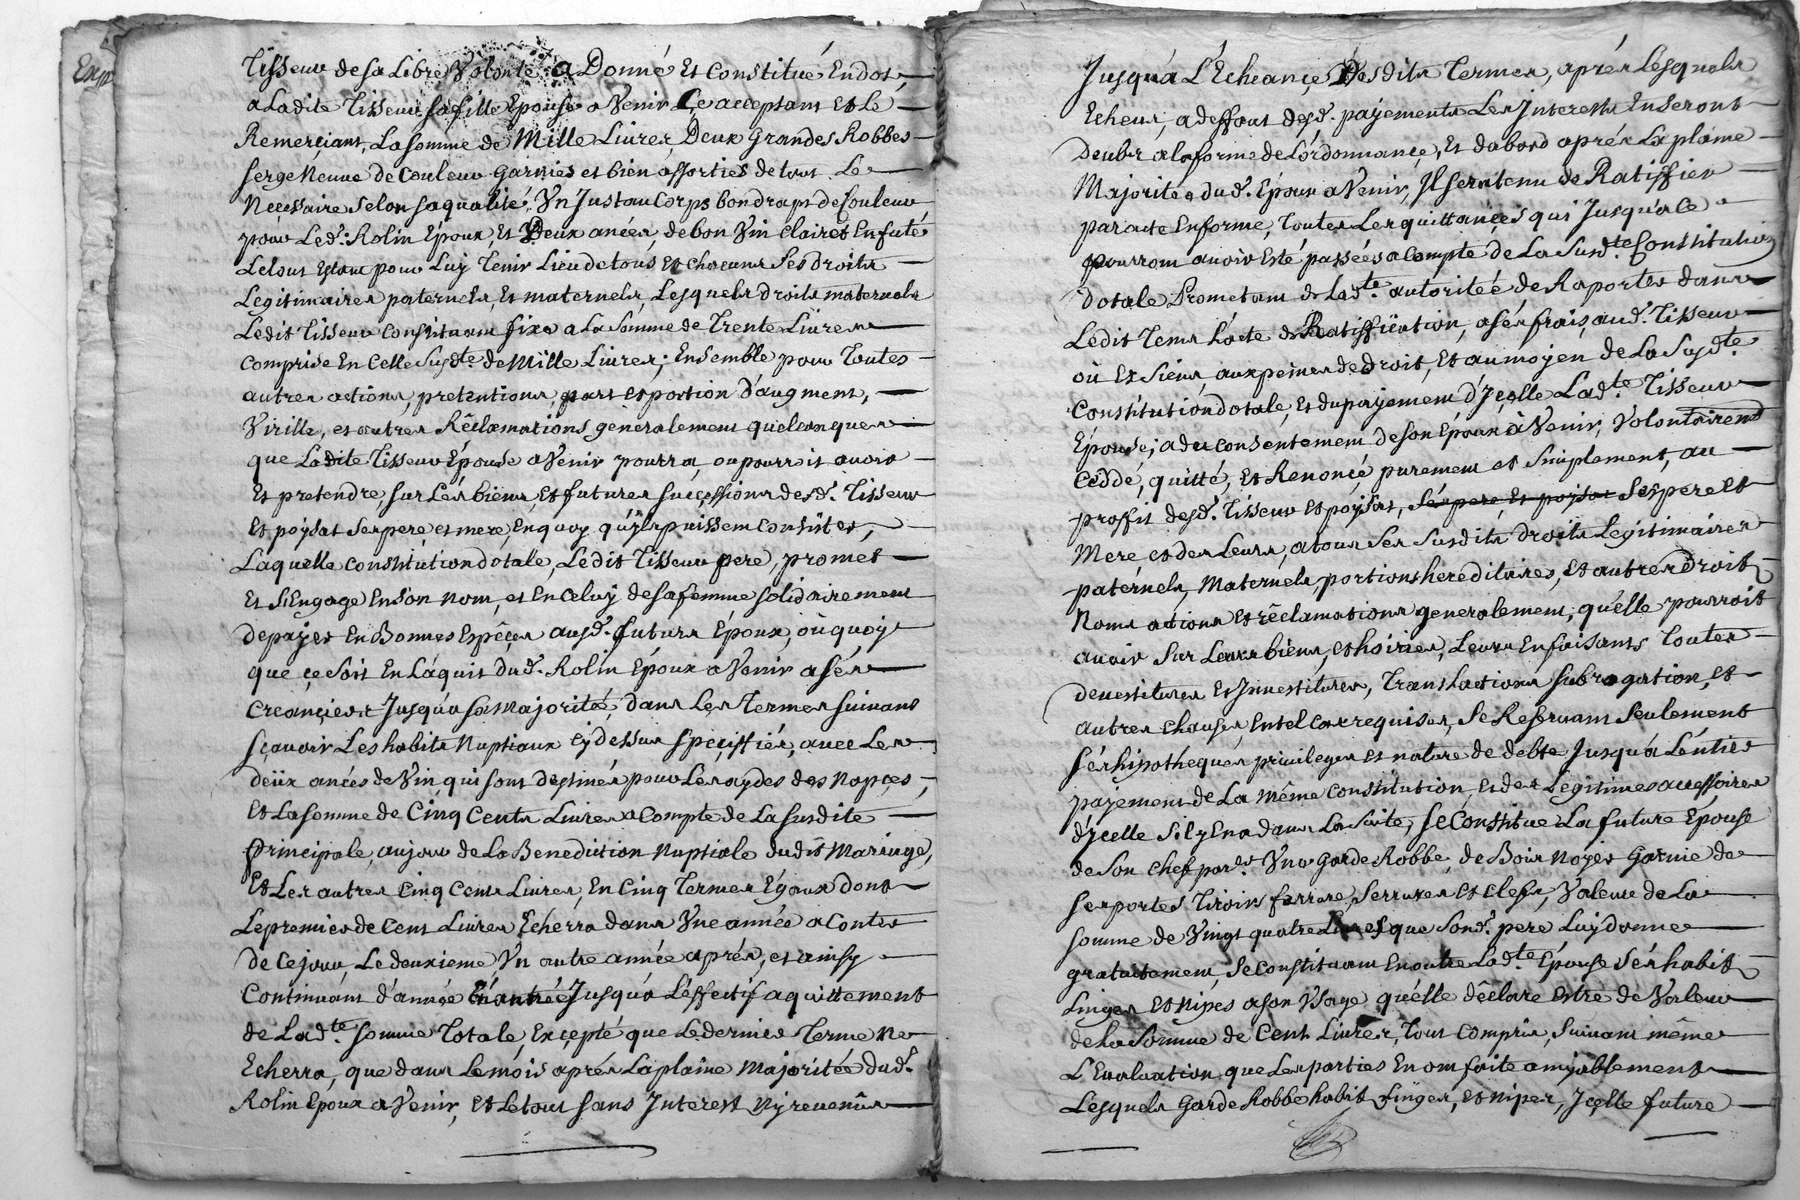 Tisseur de sa Libre Volonté a Donné Et Constitué En dot,
a Ladite Tisseur sa fille Epouse a Venir Çe acceptant et Le
Remerçiant, La somme de Mille Livres, Deux Grandes Robbes
serge Neuve de Couleur garnies et bien assorties de tout Le
Necessaire selon sa qualité, Vn Justaucorps bon drapt de Couleur
pour Led. Rolin Epoux, Et Deux anées, de bon Vin Clairet En futé
Le tout Estant pour Luy Tenir Lieu de tous et chacuns Ses Droits
Legitimaires paternels, Et maternels, Lesquels droits maternels
Ledit Tisseur Constituant fixe a La Somme de Trente Livres
comprise En Celle Susd.te de Mille Livres; Ensemble pour Toutes
autres actions, pretentions, part et portion D'augment,
Virille, et autres Rêclamations gènèralement quelconques
que Ladite Tisseur Épouse a Venir pourra, ou pourroit avoir
Et pretendre, sur Les biens, et futures successions desd. Tisseur
Et poysat Ses pere, et mere, En quoy qu'ils puissent Consister,
Laquelle Constitution dotale, Ledit Tisseur pere, promet
Et S'Engage En son nom, et En Celuy de sa femme solidairement
de payer En Bonnes Espêces ausd. futurs Époux, où quoy
que çe soit En L'aquit dud. Rolin Époux a Venir a ses
Creançiers Jusqu'a sa Majorité, dans Les Termes suivans
sçavoir Les habits Nuptiaux cy dessus speçiffiés, avec Les
deüx anées de Vin, qui sont destinés pour Les aydes des Nopçes,
Et La somme de Cinq Cents Livres a Compte de La susdite
Principale, au jour de La Benediction Nuptiale dudit Mariage,
Et Les autres Cinq Cent Livres, En Cinq Termes Egaux dont
Le premier de Cent Livres Echerra dans Vne année a Conter
de Ce jour, Le deuxieme Vn autre année aprés, et ainsy
Continuant d'année En année Jusqu'a L'effectif aquittement
de Lad.te somme Totale, Excepté que Le dernier Terme Ne
Echerra, que dans Le mois aprés La plaine Majoritée dud.
Rolin Epoux a Venir, Et Le tout sans Interest Ny revenûs
Jusqu'a L'Echeançe Desdits Termes, aprés Lesquels
Echeus, a deffaut desd. payements Les Interests En Seront
deubs a la forme de L'ordonnançe, Et dabord aprés La plaine
Majoritée dud. Epoux a Venir, Il sera tenu de Ratiffier
par acte En forme, Toutes Les quittançes qui Jusqu'a Ce
pourront avoir Eté passées a Compte de La Susd.te Constitution
dotale Promettant de Lad.te autoritée de Raporter dans
Ledit Tems L'acte de Ratiffication, a ses frais, aud. Tisseur
où Et Siens, aux peines de droit, Et au moyen de La Susd.te
Constitution dotale, Et du payement d'Içelle Lad.te Tisseur
Epouse, a du consentement de son Époux à Venir, Volontairem.t
Cèddé, quitté, Et Renonçé purement et Simplement, au
proffit desd. Tisseur et poysat, Ses pere, Et poysat Ses pere et
Mere, et des Leurs, a tous Ses Susdits droits Legitimaires
paternels, Maternels, portions hereditaires, Et autres Droits
Noms actions Et rêclamations generalement, qu'elle pourroit
avoir Sur Leurs biens, et hoiries, Leurs En faisants Toutes
devestitures Et Investitures, Translations subrogation, Et
autres Clauses En tel Cas requises, Se Reservant Seulement
Ses hipotheques privileges et nature de debte Jusqu'a L'entier
payement de La même Constitution, et des Legitimes accessoires
d'ycelle S'il y En a dans La suite, Se Constitue La future Epouse
de Son Chef par.er Vne Garde Robbe, de Bois Noyer Garnie de
ses portes Tiroirs ferrure, Serrures et Clefs, Valeur de La
somme de Vingt quatre Livres que Sond. pere Luy donne
gratuitement, Se Constituant En outre Lad.te Épouse Ses habits
Linges Et Nipes a son Vsage qu'elle dèclare Estre de Valeur
de La Somme de Cent Livres, Tout compris, Suivant même
L'Evaluation que Les parties En ont faite amiablement
Lesquels Garde Robbe habits Linges, et nipes, Içelle future